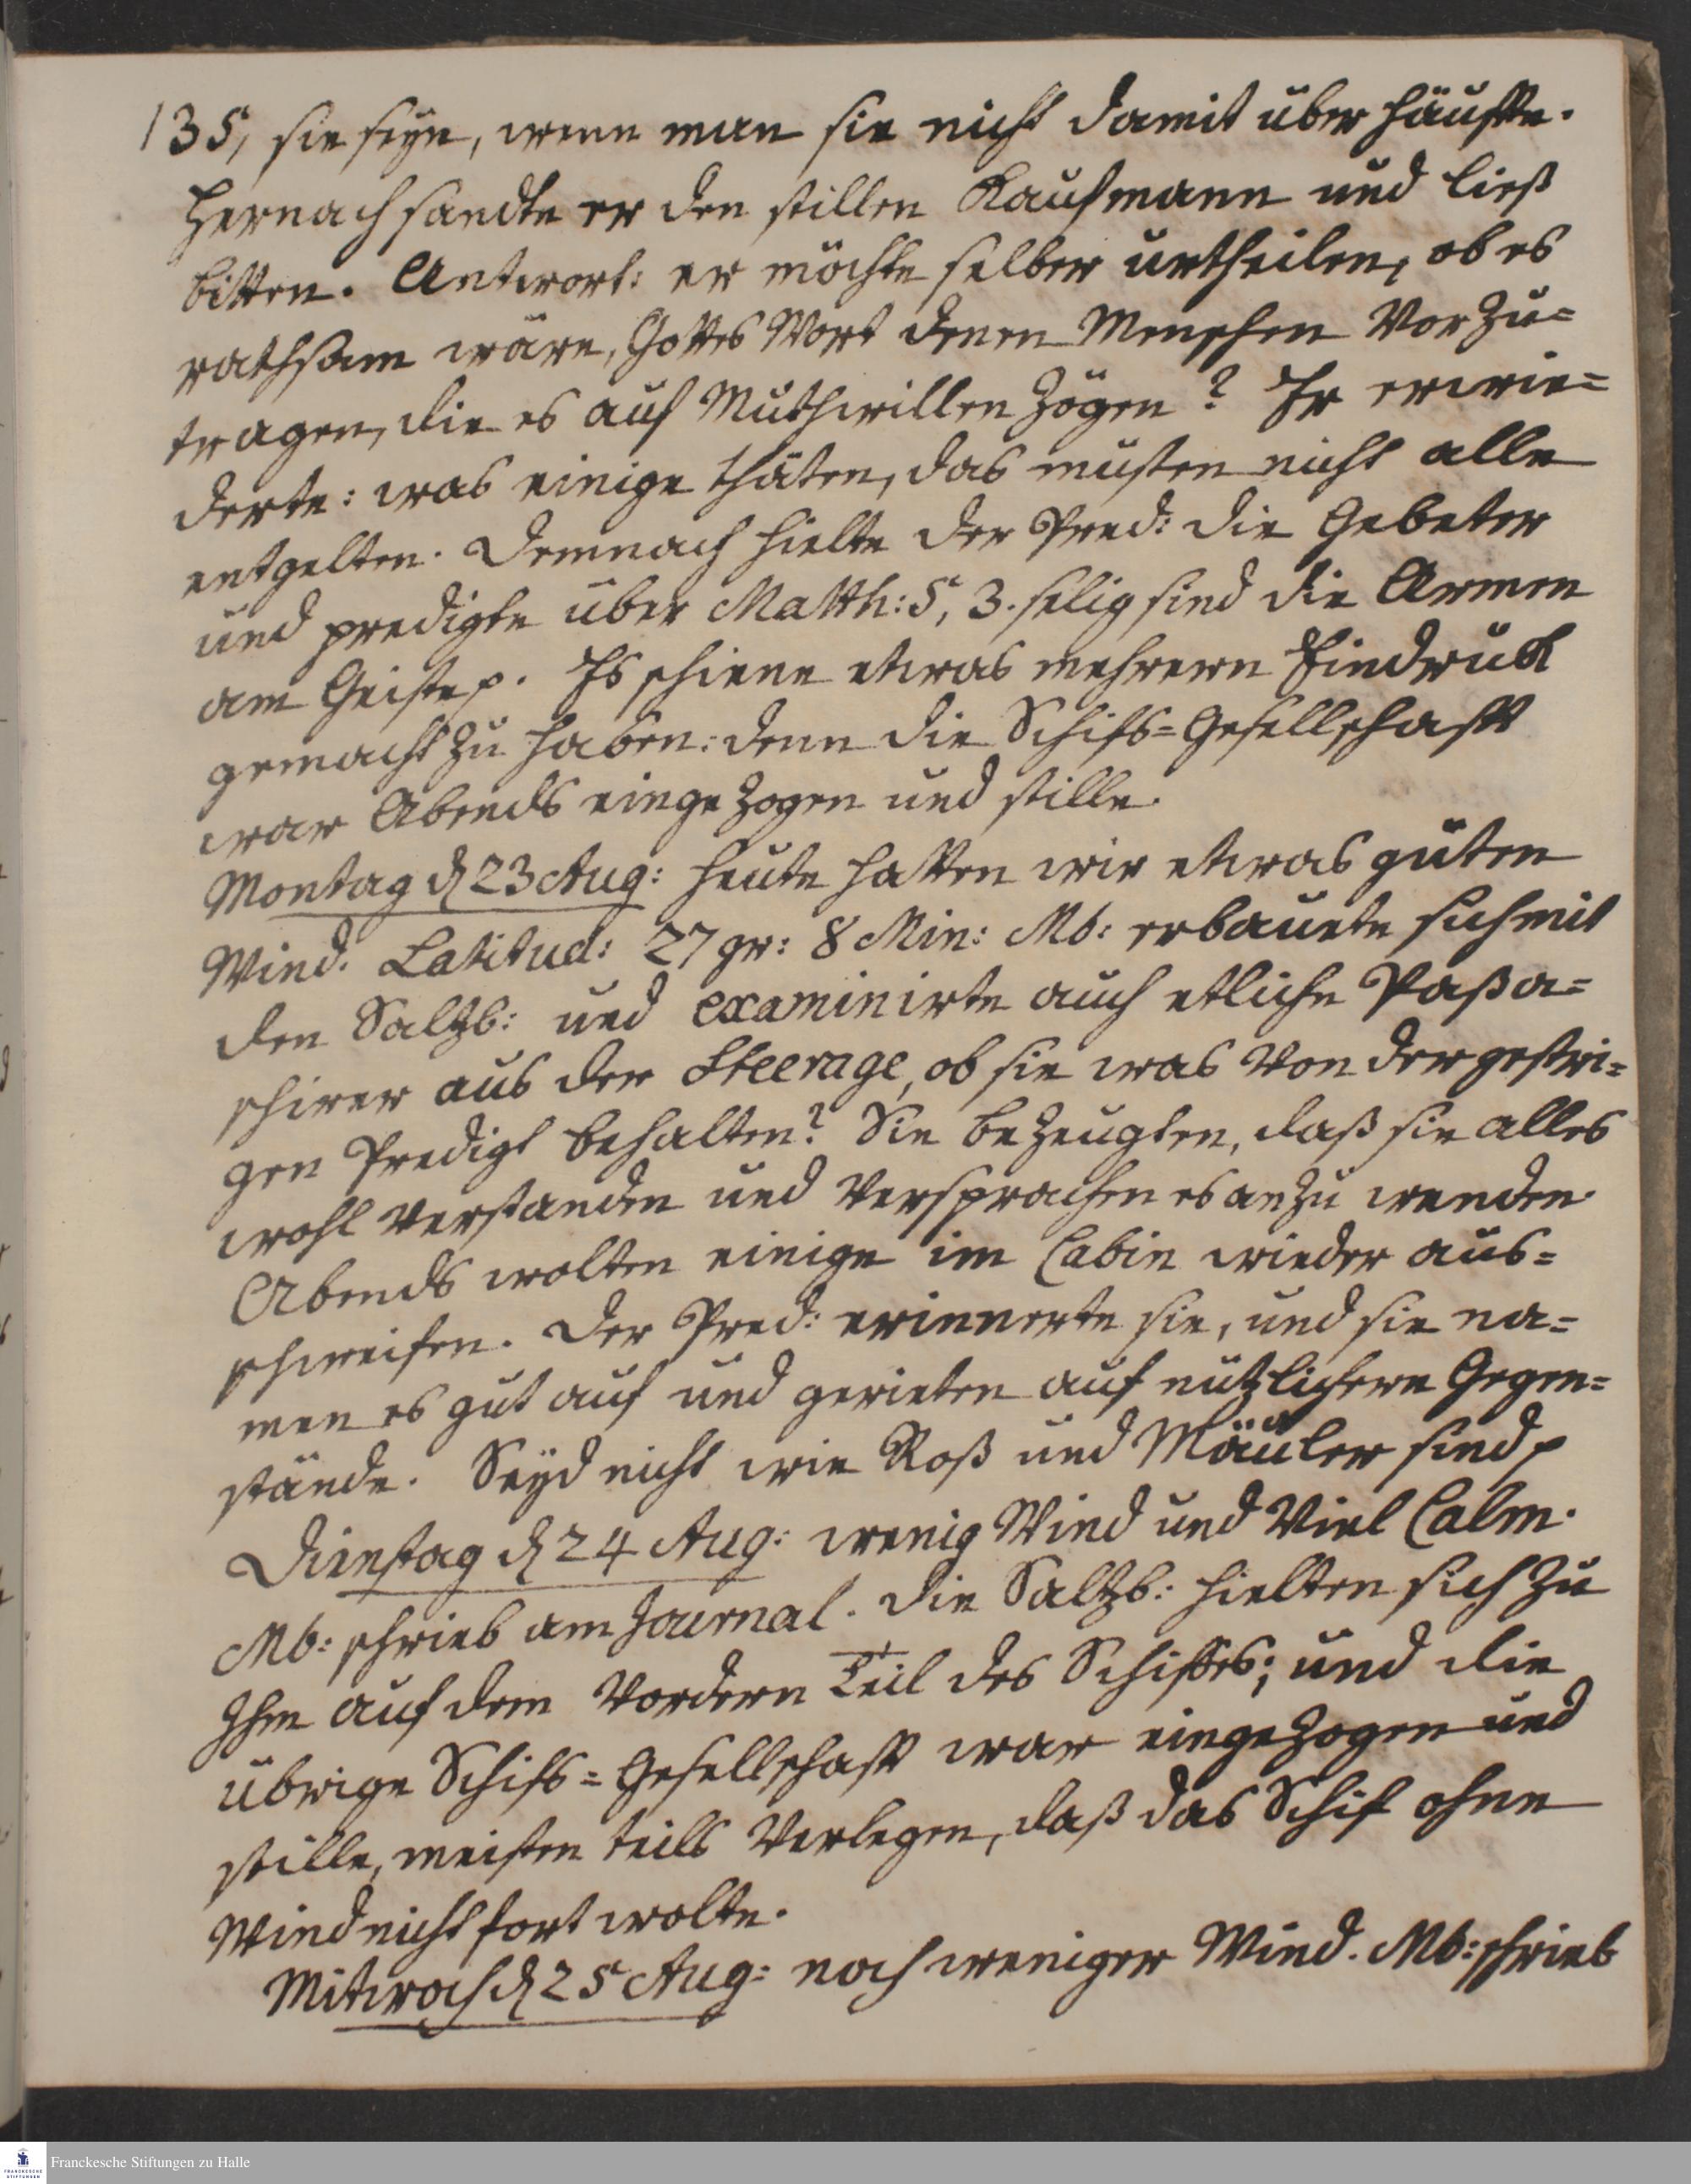 135, sie seyn, wenn man sie nicht damit überhäufte.
Hernach sandte er den stillen Kaufmann und ließ
bitten. Antwort: er möchte selber urtheilen, ob es
rathsam wäre, Gottes Wort denen Menschen Vorzu=
tragen, die es auf Muthwillen zögen? Er erwie=
derte: was einige thäten, das müsten nicht alle
entgelten. Demnach hielte der Pred: die Gebeter
und predigte über Matth: 5, 3. selig sind die Armen
am Geiste p. Es schiene etwas mehrern Eindruck
gemacht zu haben: denn die Schifs=Gesellschafft
war Abends eingezogen und stille.
Montag d 23 Aug: heute hatten wir etwas guten
Wind. Latitud: 27 gr: 8 Min: Mb: erbauete sich mit
den Saltzb: und examinirte auch etliche Paßa=
schirer aus der Steerage, ob sie was von der gestri=
gen Predigt behalten? Sie bezeugten, daß sie alles
wohl verstanden und versprachen es anzu wenden.
Abends wolten einige im Cabin wieder aus=
schweifen. Der Pred: erinnerte sie, und sie na=
men es gut auf und gerieten auf nützlichere Gegen=
stände. Seyd nicht wie Roß und Mäuler sind p
Dienstag d 24 Aug: wenig Wind und Viel Calm.
Mb: schrieb am Journal. Die Saltzb: hielten sich zu
Ihm auf dem Vordern Teil des Schiffes; und die
übrige Schifs=Gesellschafft war eingezogen und
stille, meisten teils Verlegen, daß das Schif ohne
Wind nicht fort wolte.
Mitwoch d 25 Aug: noch weniger Wind. Mb: schrieb
FRANCKESCHE STIFTUNGEN
Franckesche Stiftungen zu Halle